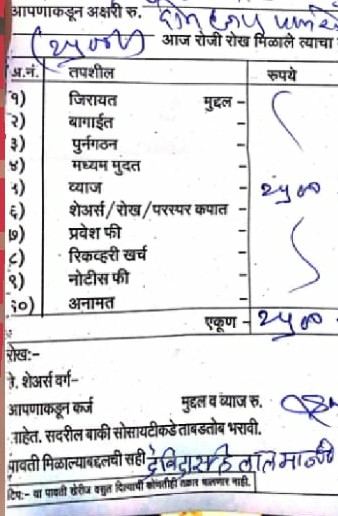 आपणाकडून अक्षरी रु. दोन हजार पाचशे
(२५००) आज रोजी रोख मिळाले त्याचा
अ.नं. तपशील रुपये
१) जिरायत मुद्दल -
२) बागाईत -
३) पुर्नगठन -
४) मध्यम मुदत -
५) व्याज - २५००
६) शेअर्स/रोख/परस्पर कपात -
७) प्रवेश फी -
८) रिकव्हरी खर्च -
९) नोटीस फी -
१०) अनामत -
एकूण - २५००
रोख:-
शेअर्स वर्ग-
आपणाकडून कर्ज मुद्दल व व्याज रु.
आहेत. सदरील बाकी सोसायटीकडे ताबडतोब भरावी.
पावती मिळाल्याबद्दलची सही
टिप:- या पावती खेरीज वसुल दिल्याची कोणतीही तक्रार चालणार नाही.